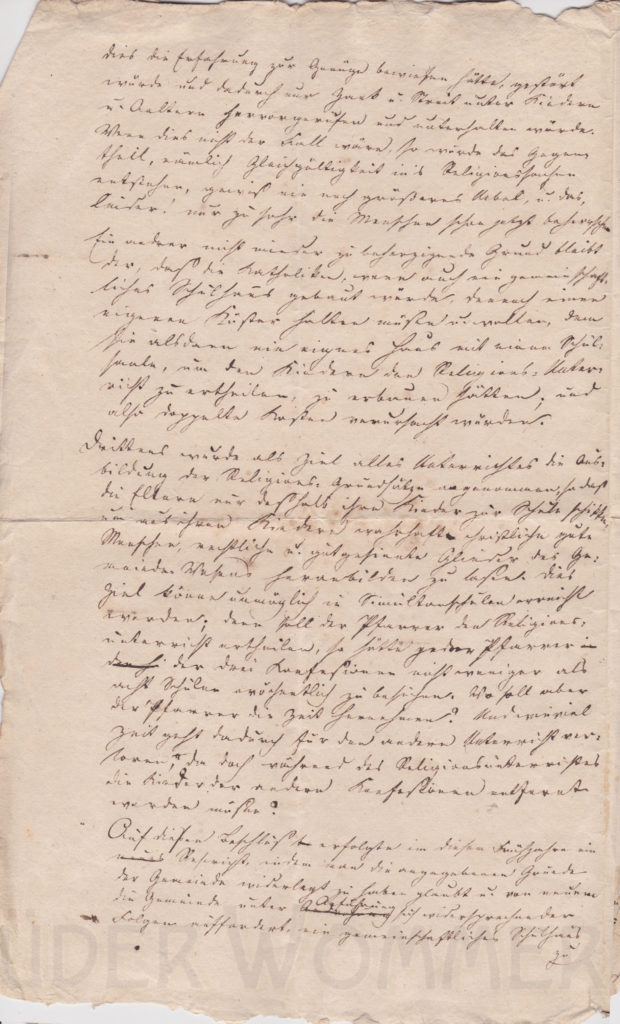 dies die Erfahrung zur Genüge bewiesen hätte, gestört
würde und dadurch nur Zank u. Streit unter Kindern
u. Aeltern hervorgerufen und unterhalten würde.
Wenn dies nicht der Fall wäre, so würde das Gegen-
theil, nämlich Gleichgültigkeit in's Religionssachen
entstehen, gewiß ein noch größeres Uebel, u. das,
leider! nur zu sehr die Menschen schon jetzt beherrscht.
Ein andrer nicht minder zu beherzigende Grund bleibt
der, daß die Katholiken, wenn auch ein gemeinschaft-
liches Schulhaus gebaut würde, dennoch einen
eigenen Küster halten müßen u. wollen, dem
sie alsdann ein eignes Haus mit einem Schul-
saale, um den Kindern den Religions-Unter-
richt zu ertheilen, zu erbauen hätten, und
also doppelte Kosten verursacht würden.
Drittens wurde als Ziel alles Unterrichtes die Aus-
bildung der Religions-Grundsätze angenommen, so daß
die Eltern nur deßhalb ihre Kinder zur Schule schickten,
um aus ihren Kindern wahrhaft christliche gute
Menschen, rechtliche u. gutgesinnte Glieder des Ge-
meinde-Wesens heranbilden zu laßen. Dies
Ziel könne unmöglich in Simultanschulen erreicht
werden; denn soll der Pfarrer den Religions-
unterricht ertheilen, so hätte jeder Pfarrer in
der drei Konfessionen nicht weniger als
acht Schulen wöchentlich zu besuchen. Wo soll aber
der Pfarrer die Zeit hernehmen? Und wieviel
Zeit geht dadurch für den andern Unterricht ver-
loren, da doch während des Religionsunterrichtes
die Kinder der andern Konfessionen entfernt
werden müßen?
Auf diesen Beschluß erfolgte in diesem Frühjahre ein
Rescript, indem man die angegebenen Gründe
der Gemeinde widerlegt zu haben glaubt u. von neuem
die Gemeinde unter Anführung sich widersprechender
Folgen auffordert, ein gemeinschaftliches Schulhaus
zu
UDEK WOMMER